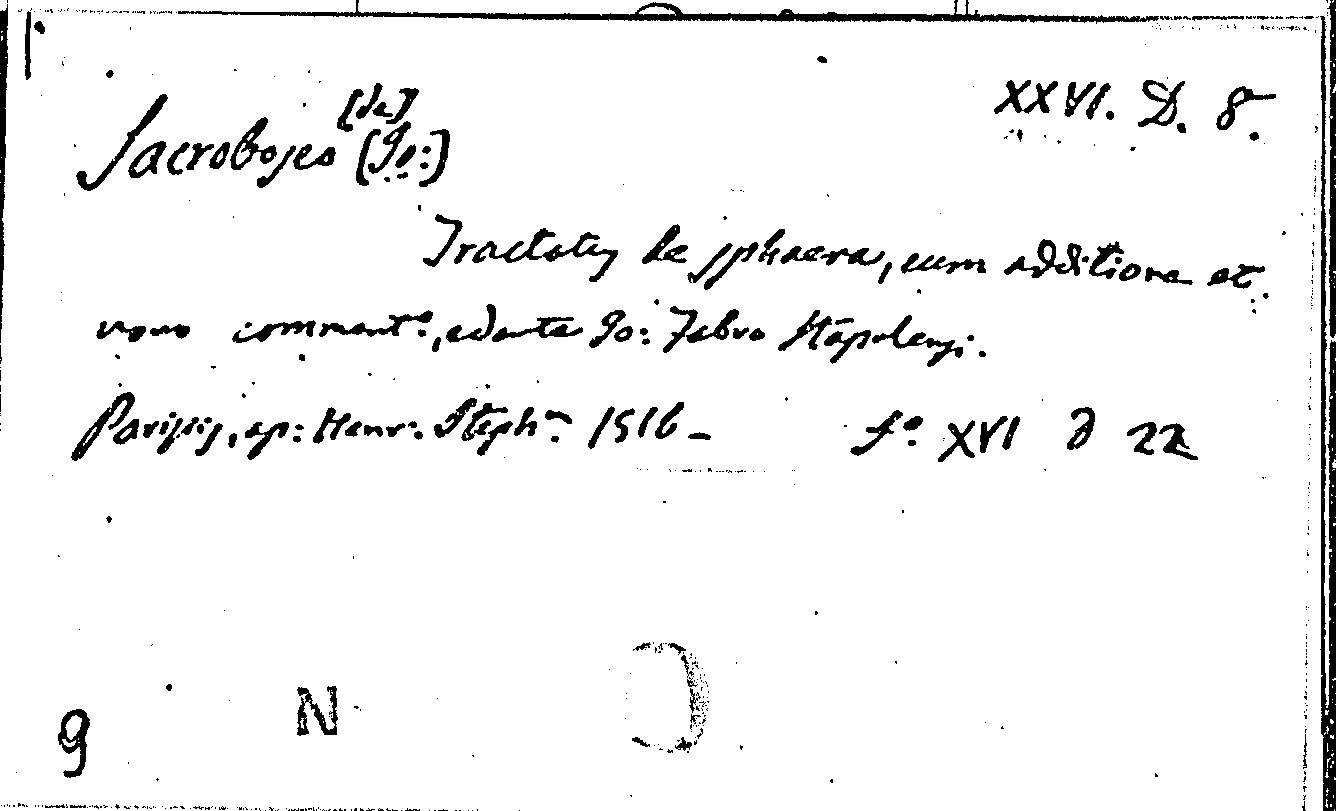 Sacrobosco [de] (Jo:) XXVI. D. 8.
Tractatus de sphaera, cum additione et
novo comment.º, edente Jo: Fabro Stapulensi.
Parisiis, ap: Henr. Steph.m 1516 - f.º XVI D 22
9 N